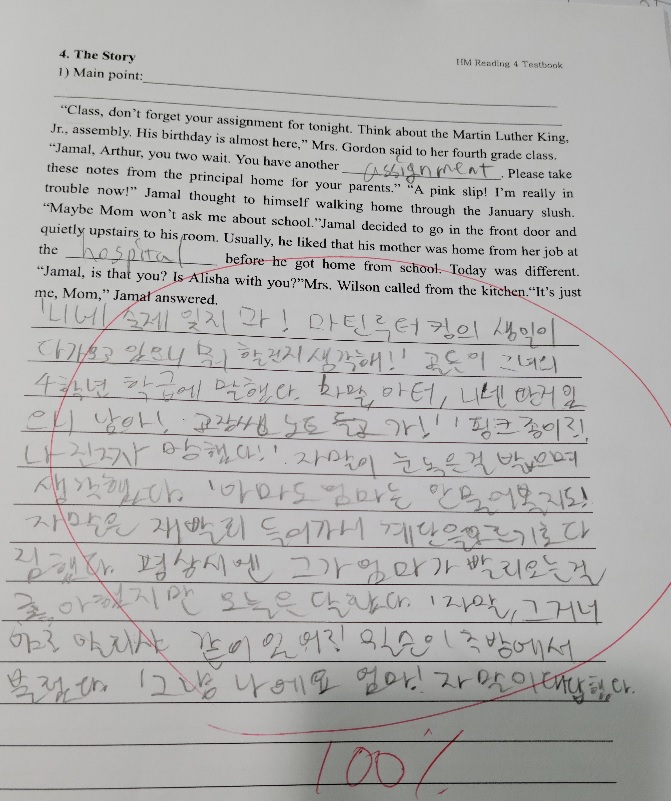 4. The Story
HM Reading 4 Textbook
1) Main point:
"Class, don't forget your assignment for tonight. Think about the Martin Luther King,
Jr., assembly. His birthday is almost here," Mrs. Gordon said to her fourth grade class.
"Jamal, Arthur, you two wait. You have another assignment. Please take
these notes from the principal home for your parents." "A pink slip! I'm really in
trouble now!" Jamal thought to himself walking home through the January slush.
"Maybe Mom won't ask me about school."Jamal decided to go in the front door and
quietly upstairs to his room. Usually, he liked that his mother was home from her job at
the hospital before he got home from school. Today was different.
"Jamal, is that you? Is Alisha with you?"Mrs. Wilson called from the kitchen."It's just
me, Mom," Jamal answered.
'니네 숙제 잊지 마! 마틴루터킹의 생일이
다가오고 있으니 뭐 할건지 생각해!' 골든이 그녀의
4학년 학급에 말했다. 자말, 아터, 니넨 딴거 있
으니 남아! 교장쌤 노트 들고 가!' '핑크종이라!,
나 진짜 망했다!' 자말이 눈녹은걸 밟으며
생각했다. '아마도 엄마는 안물어볼지도!
자말은 재빨리 들어가서 계단을오르기로 다
짐했다. 평상시엔 그가 엄마가 빨리오는걸
좋아했지만 오늘은 달랐다. '자말, 그거너
야? 알리샤 같이 있니? 윌슨이 주방에서
불렀다. '그냥 나에요 엄마! 자말이대답했다.
100%